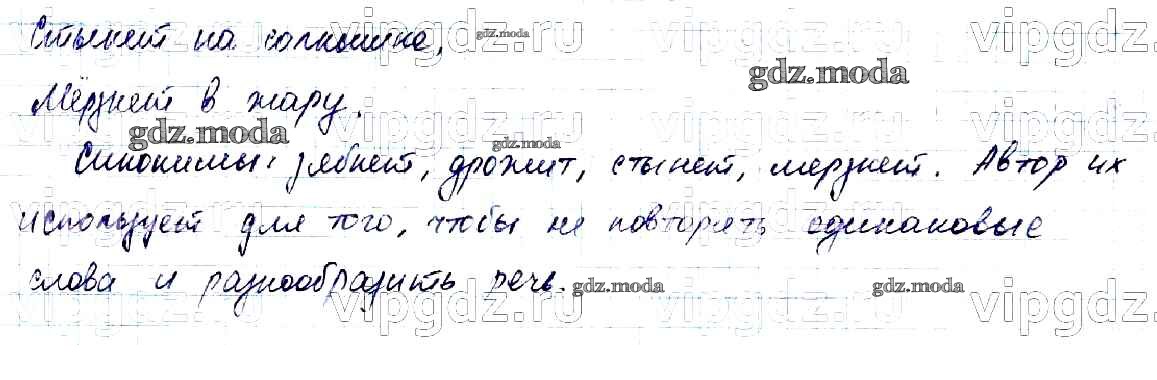 Стынет на солнышке,
Мёрзнет в жару.
Синонимы: зябнет, дрожит, стынет, мерзнет. Автор их
использует для того, чтобы не повторять одинаковые
слова и разнообразить речь.
gdz.moda
gdz.moda
gdz.moda
gdz.moda
gdz.moda
gdz.moda
vipgdz.ru
vipgdz.ru
vipgdz.ru
vipgdz.ru
vipgdz.ru
vipgdz.ru
vipgdz.ru
vipgdz.ru